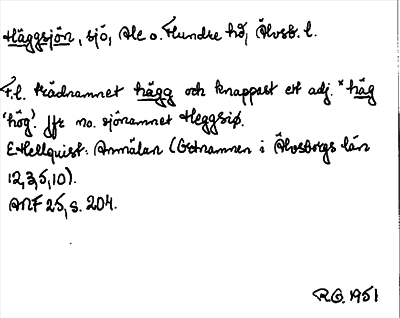 Häggsjön, sjö, Ale o. Flundre hd, Älvsb. l.
T.l. trädnamnet hägg och knappast ett adj. *häg
'hög'. Jfr no. sjönamnet Heggsiø.
E Hellquist: Anmälan (Ortnamnen i Älvsborgs län
12,3,5,10).
ANF 25, s. 204.
R.G. 1951